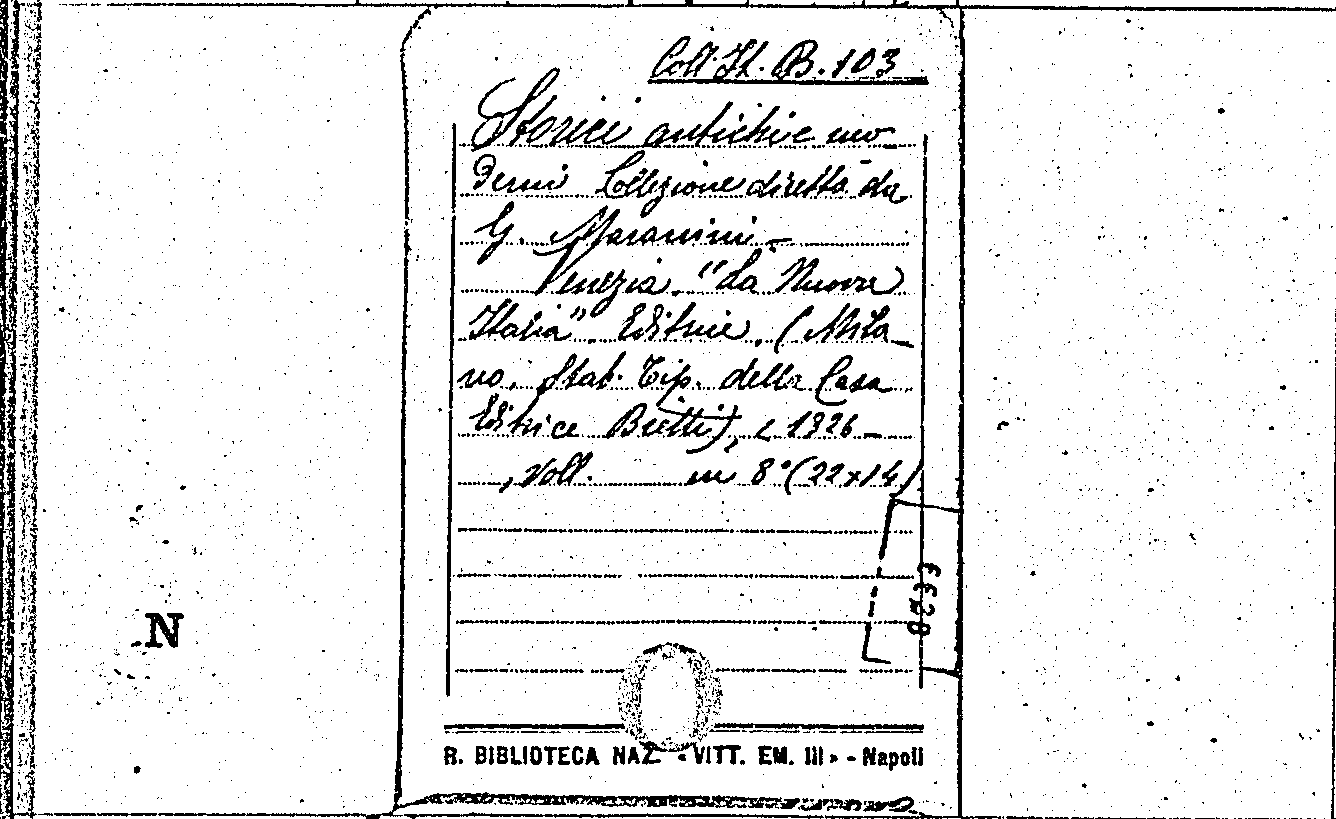 Coll. It. B. 103
Storici antichi e mo-
derni Collezione diretta da
G. Maranini. -
Venezia. "La Nuova
Italia" Editrice. (Mila-
no. Stab. Tip. della Casa
Editrice Bietti), 1926 -
, Voll. in 8° (22x14)
N
R. BIBLIOTECA NAZ. «VITT. EM. III» - Napoli